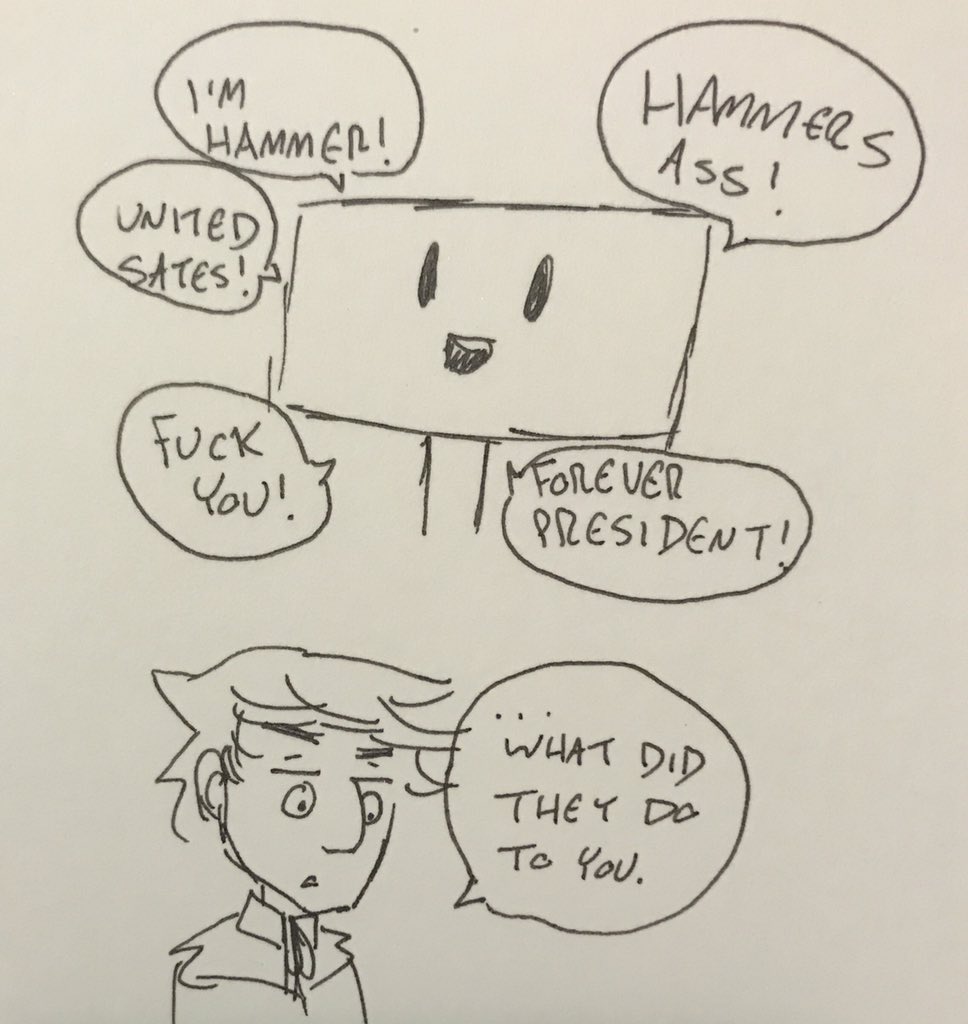 I'M
HAMMER!
HAMMERS
ASS!
UNITED
SATES!
FUCK
YOU!
FOREVER
PRESIDENT!
...
WHAT DID
THEY DO
TO YOU.